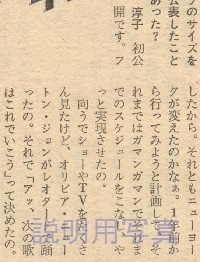 プのサイズを
公表したこと
あった?
淳子 初公
開です。フ
したから。それともニューヨー
クが変えたのかなぁ。1年前か
ら行ってみようと計画してそ
れまではガマンガマンでそれま
でのスケジュールをこなし、や
っと実現させたの。
向うでショーやTVをたくさ
ん見たけど、オリビア・ニュー
トン・ジョンがレオタードで踊
ったの。それで「アッ、次の歌
はこれでいこう」って決めたの。
説明用写真